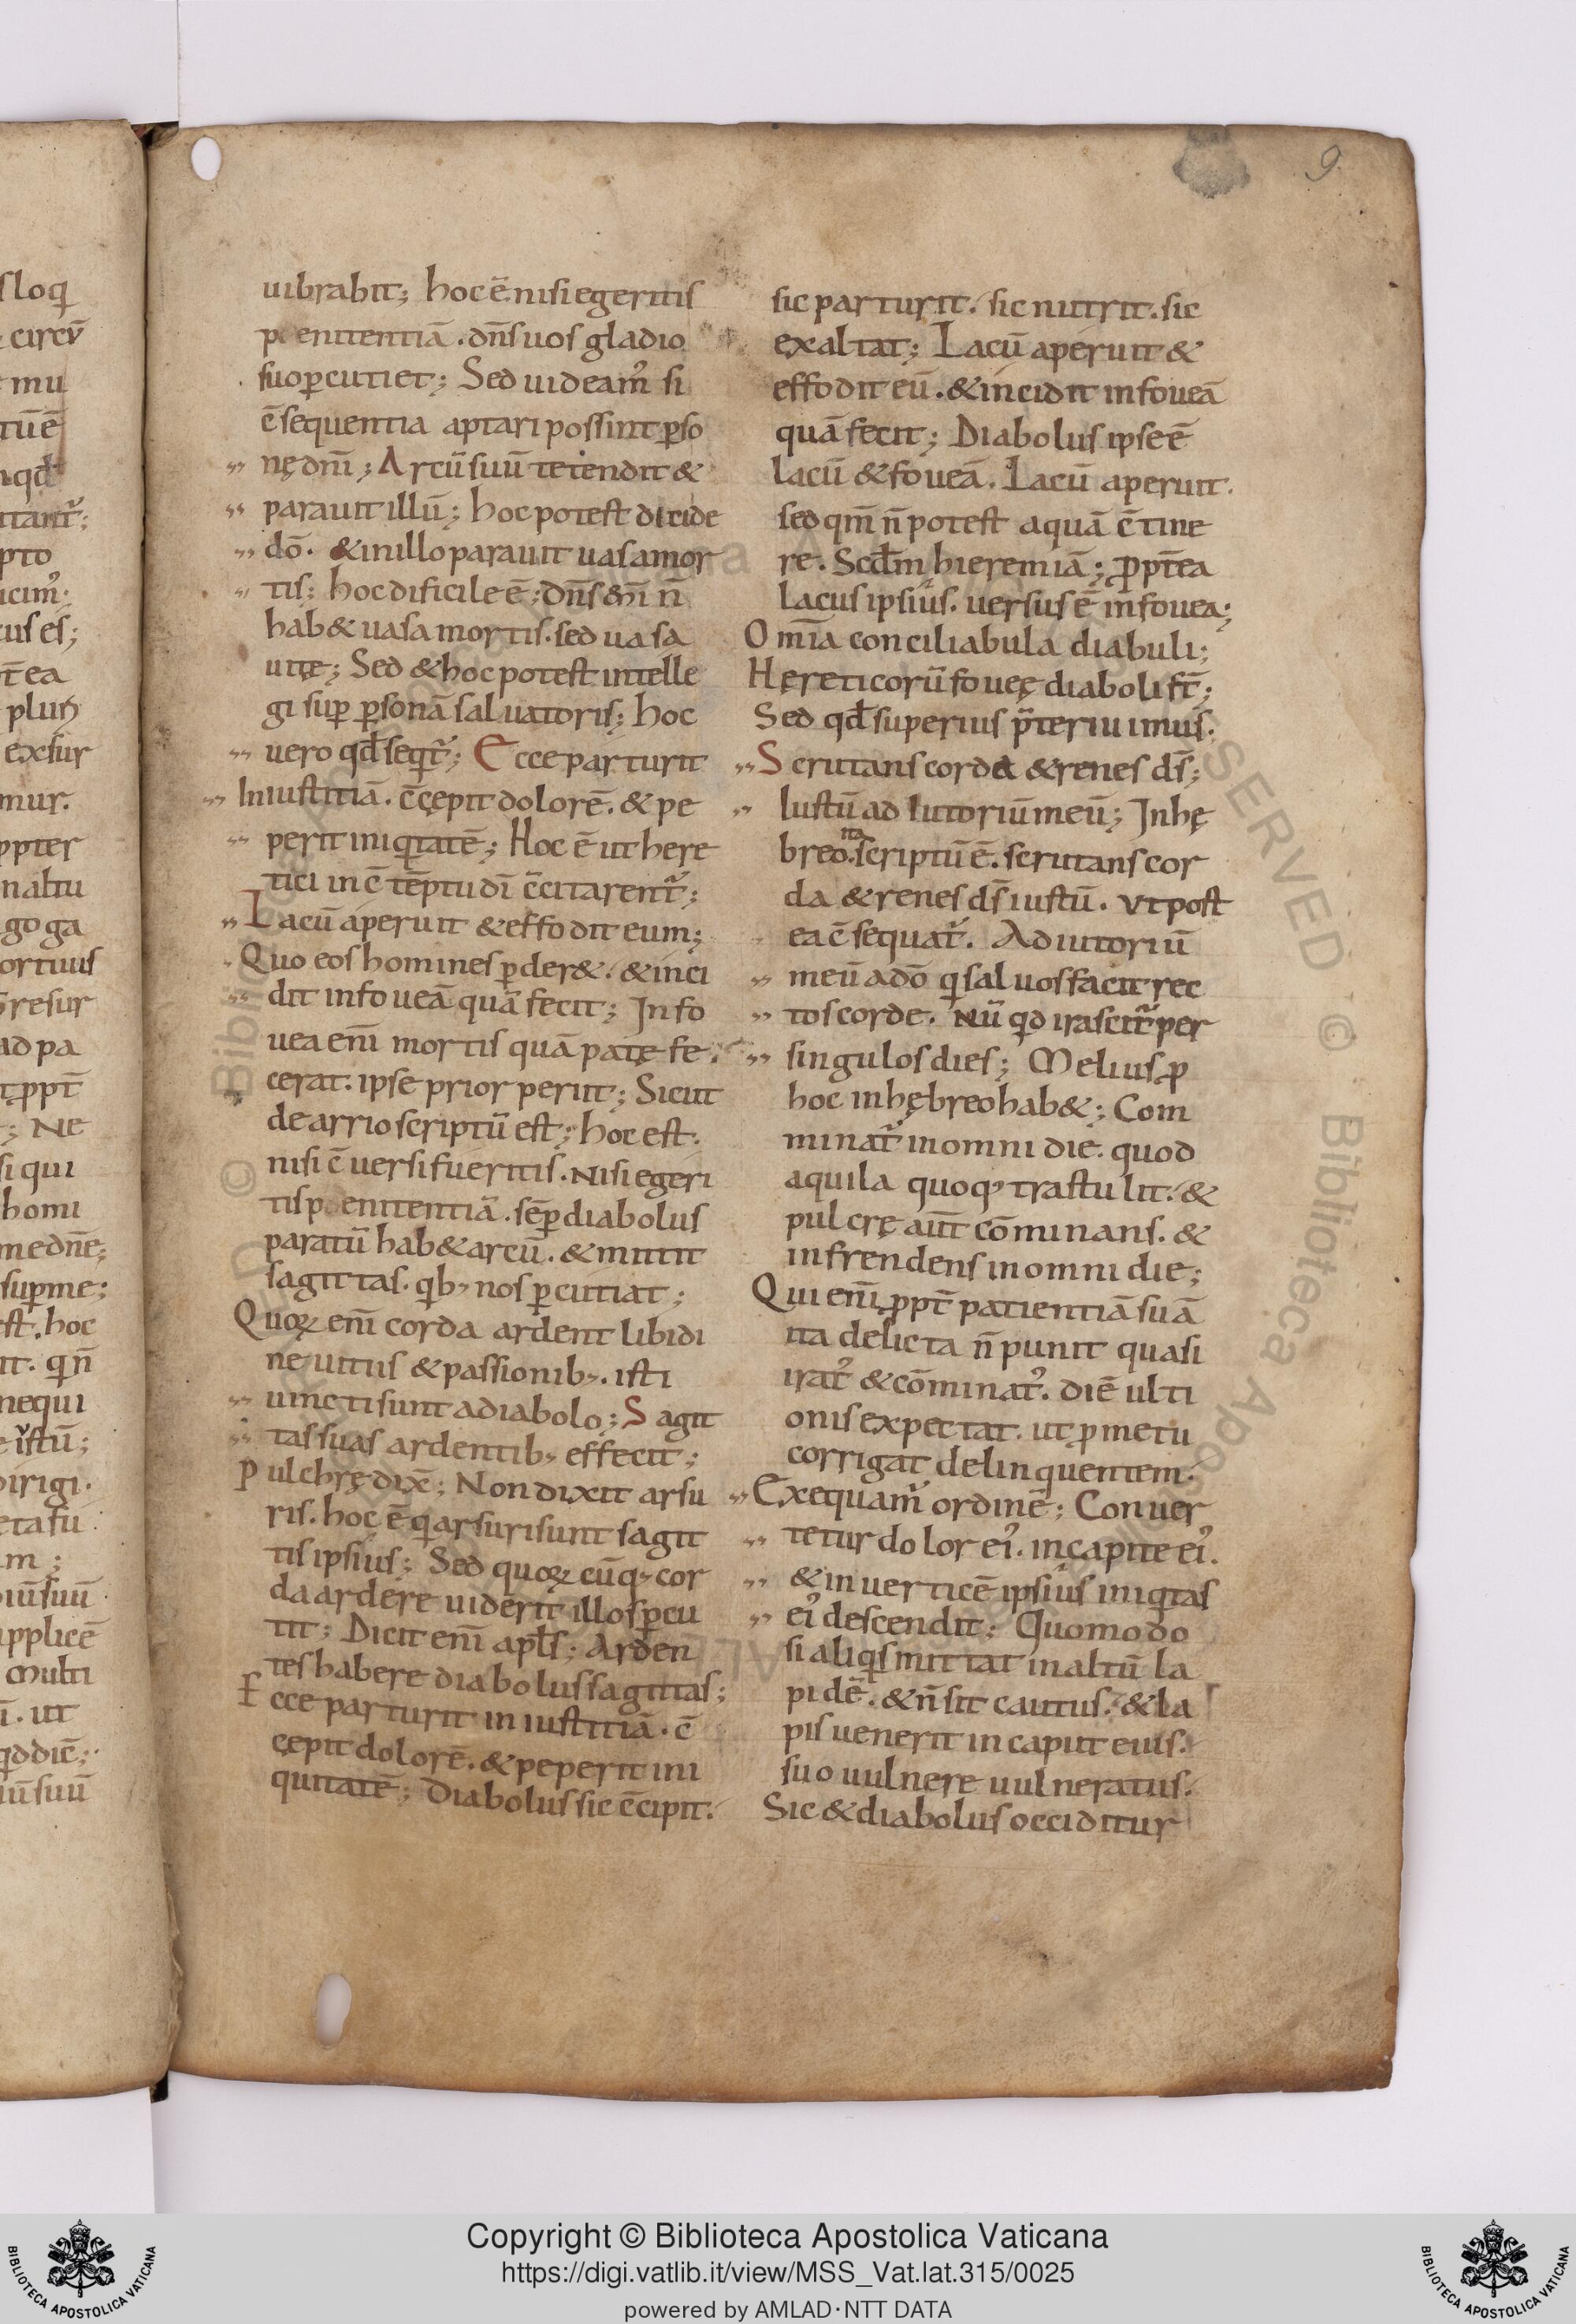 9
uibrabit; hoc ē. nisi egeritis
poenitentiā. dn̄s uos gladio
suo ꝑcutiet; Sed uideam᾽ si
c̄sequentia aptari possint ꝑso
nę dn̄i; Arcū suū tetendit &
parauit illū; hoc potest di cide
dō. & in illo parauit uasa mor
tis; hoc dificile ē; dn̄s eni n̄
hab& uasa mortis. sed uasa
uitę; Sed & hoc potest intelle
gi suꝑ ꝑsonā saluatoris; hoc
uero qd̄ seqt᾽; Ecce parturit
Iniustitiā. c̄cępit dolorē. & pe
perit iniqtatē; Hoc ē ut here
tici in c̄tēptu dī c̄citarent᾽;
Lacū aperuit & effodit eum;
Quo eos homines ꝑder&. & inci
dit in foueā quā fecit; In fo
uea enī mortis quā patefe.
cerat. ipse prior periit; Sicut
de arrio scriptū est; hoc est.
nisi c̄uersi fueritis. Nisi egeri
tis poenitentiā. sēꝑ diabolus
paratū hab& arcū. & mittit
sagittas. qb; nos ꝑcutiat;
Quoꝝ enī corda ardent libidi
ne uitiis & passionib;. isti
uincti sunt a diabolo; Sagit
tas suas ardentib; effecit;
Pulchrę dix̄; Non dixit arsu
ris. hoc ē qi arsuri sunt sagit
tis ipsius; Sed quoꝝ cūq; cor
da ardere uiderit illos ꝑcu
tit; Dicit enī apls̄; Arden
tes habere diabolus sagittas;
Ecce parturit in iustitiā. c̄
cępit dolorē. & peperit ini
quitatē; Diabolus sic c̄cipit.
sic parturit. sic nutrit. sic
exaltat; Lacū aperuit &
effodit eū. & incidit in foueā
quā fecit; Diabolus ipse ē
lacū & foueā. Lacū aperuit.
sed qm̄ n̄ potest aquā c̄tine
re. Scdm̄ hieremiā; ꝓpt̄ea
lacus ipsius. uersus ē in fouea;
Omīa conciliabula diabuli;
Hęreticorū foueę diaboli st̄;
Sed qd̄ superius p̄teriuimus.
Scrutans corda & renes ds̄;
Iustū adiutoriū meū; In hę
breo. ita scriptū ē. scrutans cor
da & renes ds̄ iustū. Vt post
ea c̄sequat᾽. Adiutoriū
meū a dō qi saluos facit rec
tos corde. Nū qd irascit᾽ per
singulos dies; Melius ꝓ
hoc in hębreo hab&; Com
minat᾽ in omni die. quod
aquila quoq; trastulit. &
pulcrę aūt cōminans. &
infrendens in omni die;
Qui enī ꝓpt̄ patientiā suā
ita delicta n̄ punit quasi
irat᾽ & cōminat᾽. diē ulti
onis expectat. ut ꝓ metu
corrigat delinquentem.
Exequam᾽ ordinē; Conuer
tetur dolor ei᾽. in capite ei᾽.
& in uerticē ipsius iniqtas
ei᾽ descendit; Quomodo
si aliqs mittat in altū la
pidē. & n̄ sit cautus. & la
pis uenerit in caput euis.
suo uulnere uulneratus.
Sic & diabolus occiditur
Copyright © Biblioteca Apostolica Vaticana
https://digi.vatlib.it/view/MSS_Vat.lat.315/0025
powered by AMLAD·NTT DATA